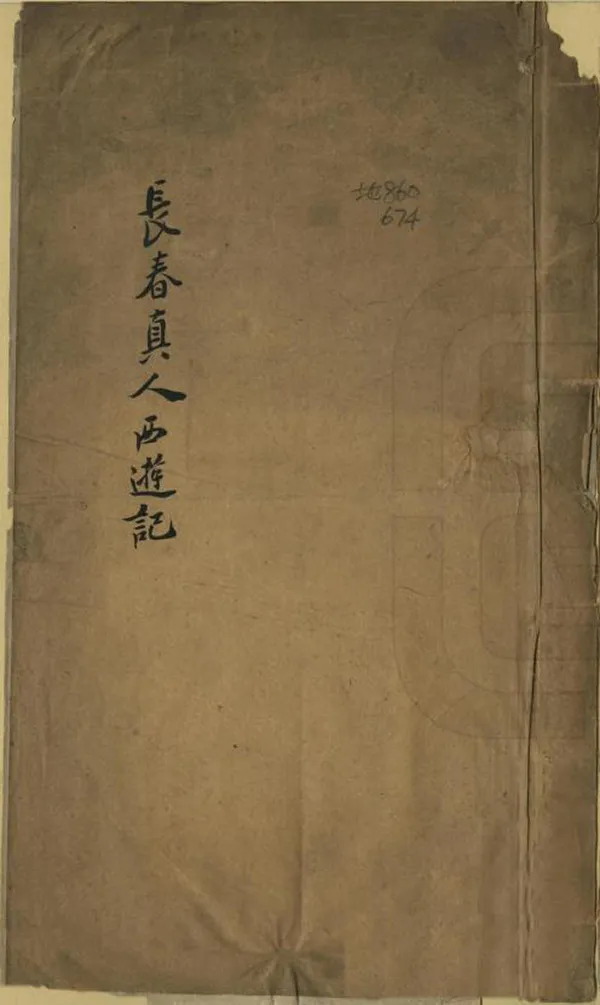 地860
674
長春真人西遊記